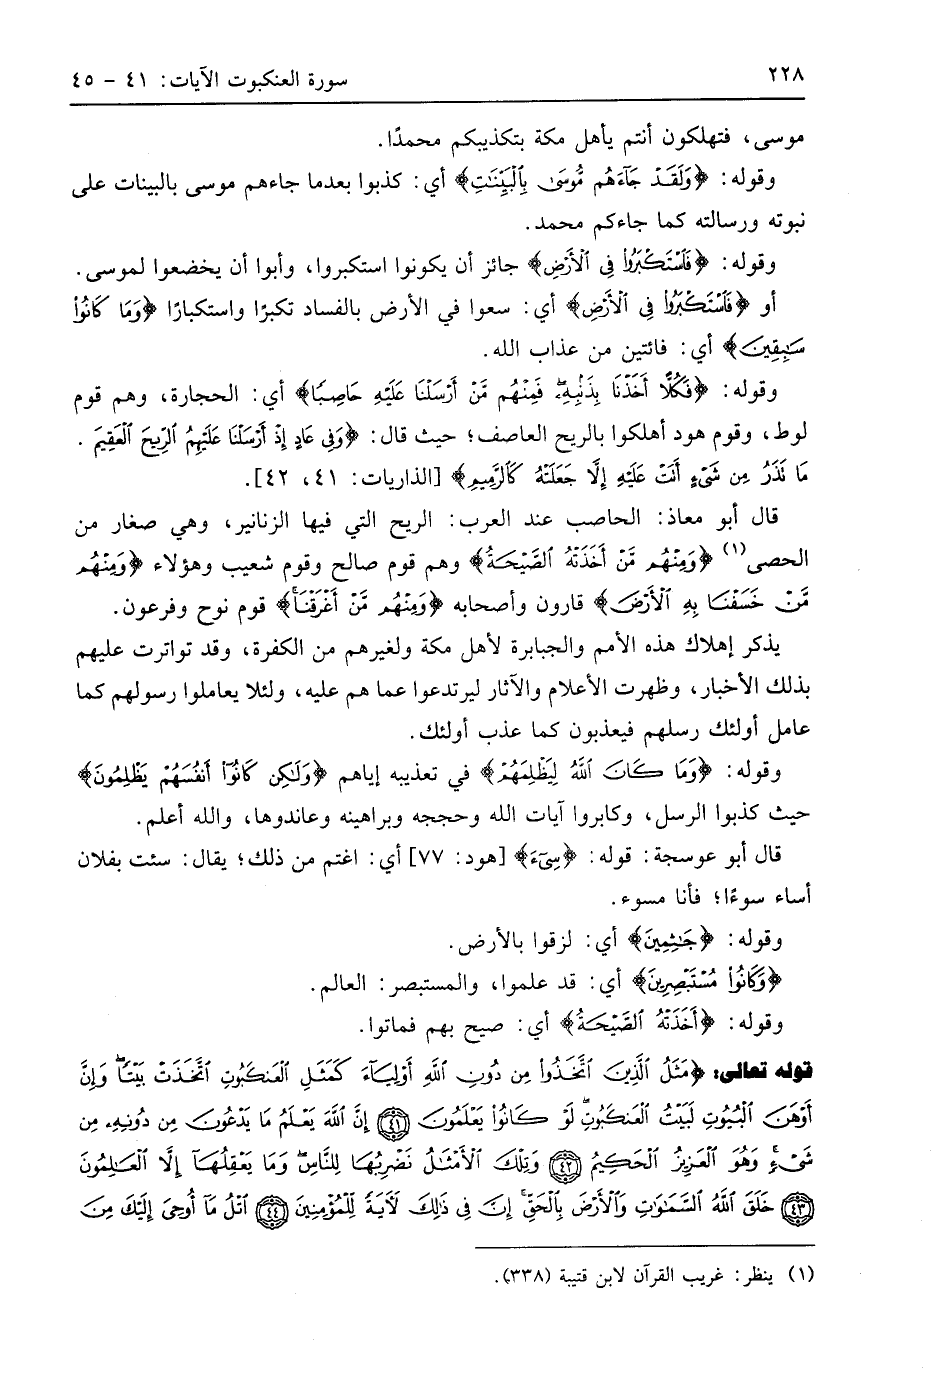 ٢٢٨
سورة العنكبوت الآيات: ٤١ - ٤٥
موسى، فتهلكون أنتم يأهل مكة بتكذيبكم محمدًا.
وقوله: ﴿وَلَقَدْ جَآءَهُم مُّوسَىٰ بِالْبَيِّنَٰتِ﴾ أي: كذبوا بعدما جاءهم موسى بالبينات على
نبوته ورسالته كما جاءكم محمد.
وقوله: ﴿فَاسْتَكْبَرُوا۟ فِى الْأَرْضِ﴾ جائز أن يكونوا استكبروا، وأبوا أن يخضعوا لموسى.
أو ﴿فَاسْتَكْبَرُوا۟ فِى الْأَرْضِ﴾ أي: سعوا في الأرض بالفساد تكبرًا واستكبارًا ﴿وَمَا كَانُوا۟
سَٰبِقِينَ﴾ أي: فائتين من عذاب الله.
وقوله: ﴿فَكُلًّا أَخَذْنَا بِذَنۢبِهِۦ ۖ فَمِنْهُم مَّنْ أَرْسَلْنَا عَلَيْهِ حَاصِبًا﴾ أي: الحجارة، وهم قوم
لوط، وقوم هود أهلكوا بالريح العاصف؛ حيث قال: ﴿وَفِى عَادٍ إِذْ أَرْسَلْنَا عَلَيْهِمُ الرِّيحَ الْعَقِيمَ .
مَا تَذَرُ مِن شَىْءٍ أَتَتْ عَلَيْهِ إِلَّا جَعَلَتْهُ كَالرَّمِيمِ﴾ [الذاريات: ٤١، ٤٢].
قال أبو معاذ: الحاصب عند العرب: الريح التي فيها الزنانير، وهي صغار من
الحصى(١) ﴿وَمِنْهُم مَّنْ أَخَذَتْهُ الصَّيْحَةُ﴾ وهم قوم صالح وقوم شعيب وهؤلاء ﴿وَمِنْهُم
مَّنْ خَسَفْنَا بِهِ الْأَرْضَ﴾ قارون وأصحابه ﴿وَمِنْهُم مَّنْ أَغْرَقْنَا ۚ﴾ قوم نوح وفرعون.
يذكر إهلاك هذه الأمم والجبابرة لأهل مكة ولغيرهم من الكفرة، وقد تواترت عليهم
بذلك الأخبار، وظهرت الأعلام والآثار ليرتدعوا عما هم عليه، ولئلا يعاملوا رسولهم كما
عامل أولئك رسلهم فيعذبون كما عذب أولئك.
وقوله: ﴿وَمَا كَانَ اللَّهُ لِيَظْلِمَهُمْ﴾ في تعذيبه إياهم ﴿وَلَٰكِن كَانُوٓا۟ أَنفُسَهُمْ يَظْلِمُونَ﴾
حيث كذبوا الرسل، وكابروا آيات الله وحججه وبراهينه وعاندوها، والله أعلم.
قال أبو عوسجة: قوله: ﴿سِىٓءَ﴾ [هود: ٧٧] أي: اغتم من ذلك؛ يقال: سئت بفلان
أساء سوءًا؛ فأنا مسوء.
وقوله: ﴿جَٰثِمِينَ﴾ أي: لزقوا بالأرض.
﴿وَكَانُوا۟ مُسْتَبْصِرِينَ﴾ أي: قد علموا، والمستبصر: العالم.
وقوله: ﴿أَخَذَتْهُ الصَّيْحَةُ﴾ أي: صيح بهم فماتوا.
قوله تعالى: ﴿مَثَلُ الَّذِينَ اتَّخَذُوا۟ مِن دُونِ اللَّهِ أَوْلِيَآءَ كَمَثَلِ الْعَنكَبُوتِ اتَّخَذَتْ بَيْتًا ۖ وَإِنَّ
أَوْهَنَ الْبُيُوتِ لَبَيْتُ الْعَنكَبُوتِ ۖ لَوْ كَانُوا۟ يَعْلَمُونَ ٤١ إِنَّ اللَّهَ يَعْلَمُ مَا يَدْعُونَ مِن دُونِهِۦ مِن
شَىْءٍ ۚ وَهُوَ الْعَزِيزُ الْحَكِيمُ ٤٢ وَتِلْكَ الْأَمْثَٰلُ نَضْرِبُهَا لِلنَّاسِ ۖ وَمَا يَعْقِلُهَآ إِلَّا الْعَٰلِمُونَ
٤٣ خَلَقَ اللَّهُ السَّمَٰوَٰتِ وَالْأَرْضَ بِالْحَقِّ ۚ إِنَّ فِى ذَٰلِكَ لَءَايَةً لِّلْمُؤْمِنِينَ ٤٤ اتْلُ مَآ أُوحِىَ إِلَيْكَ مِنَ
(١) ينظر: غريب القرآن لابن قتيبة (٣٣٨).